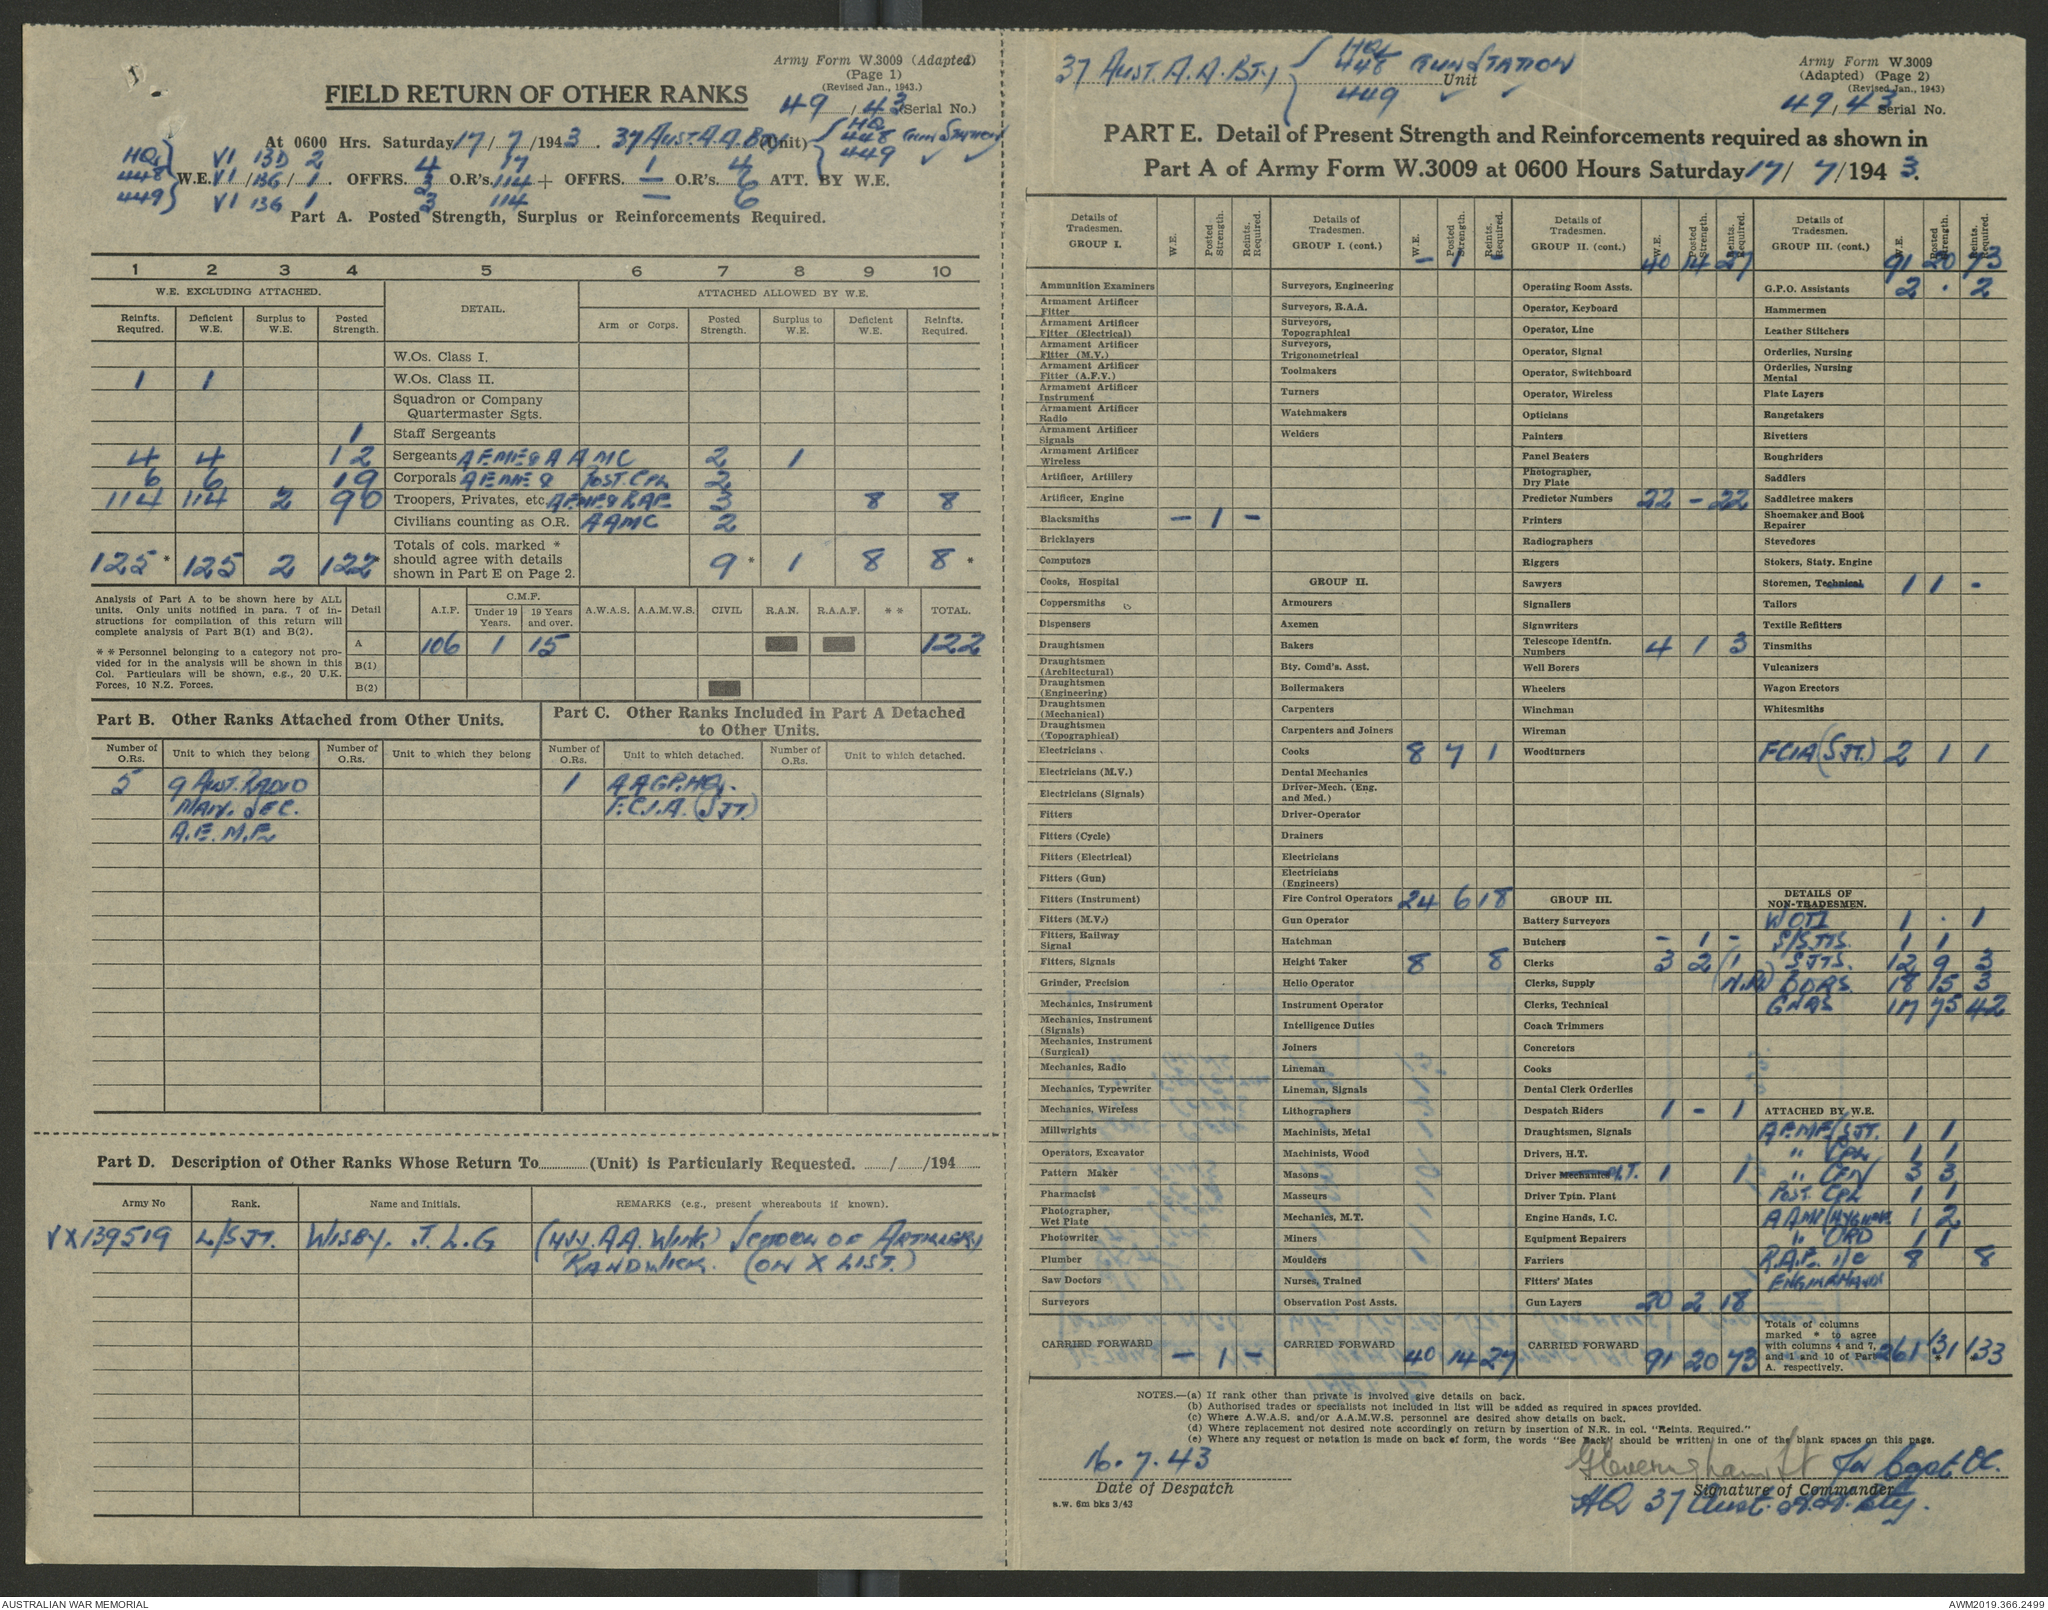 Army Form W.3009 (Adapted)
(Page 1)
(Revised Jan., 1943.)
FIELD RETURN OF OTHER RANKS
49/43 (Serial No.)
At 0600 Hrs. Saturday 17/7/1943. 37 AUST. A.A. BTY (Unit) { HQ 448 449 GUN STATION
HQ VI 13D 2 4 17 1 4
448 W.E. VI/13G/1. OFFRS. 3 O.R's. 114 + OFFRS. — O.R's. 6 ATT. BY W.E.
449 VI 13G 1 3 114 — 6
Part A. Posted Strength, Surplus or Reinforcements Required.
1 2 3 4 5 6 7 8 9 10
W.E. EXCLUDING ATTACHED. DETAIL. ATTACHED ALLOWED BY W.E.
Reinfts. Required. Deficient W.E. Surplus to W.E. Posted Strength. Arm or Corps. Posted Strength. Surplus to W.E. Deficient W.E. Reinfts. Required.
W.Os. Class I.
1 1 W.Os. Class II.
Squadron or Company Quartermaster Sgts.
1 Staff Sergeants
4 4 12 Sergeants AEME & AAMC 2 1
6 6 19 Corporals AEME & POST. CPL 2
114 114 2 90 Troopers, Privates, etc. AEME & RAE 3 8 8
Civilians counting as O.R. AAMC 2
125* 125 2 122* Totals of cols. marked * should agree with details shown in Part E on Page 2. 9* 1 8 8*
Analysis of Part A to be shown here by ALL units. Only units notified in para. 7 of instructions for compilation of this return will complete analysis of Part B(1) and B(2).
* * Personnel belonging to a category not provided for in the analysis will be shown in this Col. Particulars will be shown, e.g., 20 U.K. Forces, 10 N.Z. Forces.
Detail A.I.F. C.M.F. Under 19 Years. 19 Years and over. A.W.A.S. A.A.M.W.S. CIVIL R.A.N. R.A.A.F. * * TOTAL.
A 106 1 15 122
B(1)
B(2)
Part B. Other Ranks Attached from Other Units.
Part C. Other Ranks Included in Part A Detached to Other Units.
Number of O.Rs. Unit to which they belong Number of O.Rs. Unit to which they belong Number of O.Rs. Unit to which detached. Number of O.Rs. Unit to which detached.
5 9 AUST. RADIO 1 AAGP. HQ.
MAIN. SEC. F.C.I.A. (SJT.)
A.E.M.E.
Part D. Description of Other Ranks Whose Return To (Unit) is Particularly Requested. / /194
Army No Rank. Name and Initials. REMARKS (e.g., present whereabouts if known).
VX139519 L/SJT. WISBY. J. L. G (A.A. WING) SCHOOL OF ARTILLERY
RANDWICK. (ON X LIST.)
37 AUST. A.A. BTY { HQ 448 449 GUN STATION Unit
Army Form W.3009
(Adapted) (Page 2)
(Revised Jan., 1943)
49/43 Serial No.
PART E. Detail of Present Strength and Reinforcements required as shown in
Part A of Army Form W.3009 at 0600 Hours Saturday 17/7/1943.
Details of Tradesmen. GROUP I. W.E. Posted Strength. Reints. Required.
Ammunition Examiners
Armament Artificer Fitter
Armament Artificer Fitter (Electrical)
Armament Artificer Fitter (M.V.)
Armament Artificer Fitter (A.F.V.)
Armament Artificer Instrument
Armament Artificer Radio
Armament Artificer Signals
Armament Artificer Wireless
Artificer, Artillery
Artificer, Engine
Blacksmiths — 1 —
Bricklayers
Computors
Cooks, Hospital
Coppersmiths
Dispensers
Draughtsmen
Draughtsmen (Architectural)
Draughtsmen (Engineering)
Draughtsmen (Mechanical)
Draughtsmen (Topographical)
Electricians
Electricians (M.V.)
Electricians (Signals)
Fitters
Fitters (Cycle)
Fitters (Electrical)
Fitters (Gun)
Fitters (Instrument)
Fitters (M.V.)
Fitters, Railway Signal
Fitters, Signals
Grinder, Precision
Mechanics, Instrument
Mechanics, Instrument (Signals)
Mechanics, Instrument (Surgical)
Mechanics, Radio
Mechanics, Typewriter
Mechanics, Wireless
Millwrights
Operators, Excavator
Pattern Maker
Pharmacist
Photographer, Wet Plate
Photowriter
Plumber
Saw Doctors
Surveyors
CARRIED FORWARD — 1 —
Details of Tradesmen. GROUP I. (cont.) W.E. Posted Strength. Reints. Required.
— 1 —
Surveyors, Engineering
Surveyors, R.A.A.
Surveyors, Topographical
Surveyors, Trigonometrical
Toolmakers
Turners
Watchmakers
Welders
GROUP II.
Armourers
Axemen
Bakers
Bty. Comd's. Asst.
Boilermakers
Carpenters
Carpenters and Joiners
Cooks 8 7 1
Dental Mechanics
Driver-Mech. (Eng. and Med.)
Driver-Operator
Drainers
Electricians
Electricians (Engineers)
Fire Control Operators 24 6 18
Gun Operator
Hatchman
Height Taker 8 8
Helio Operator
Instrument Operator
Intelligence Duties
Joiners
Lineman
Lineman, Signals
Lithographers
Machinists, Metal
Machinists, Wood
Masons
Masseurs
Mechanics, M.T.
Miners
Moulders
Nurses, Trained
Observation Post Assts.
CARRIED FORWARD 40 14 27
Details of Tradesmen. GROUP II. (cont.) W.E. Posted Strength. Reints. Required.
40 14 27
Operating Room Assts.
Operator, Keyboard
Operator, Line
Operator, Signal
Operator, Switchboard
Operator, Wireless
Opticians
Painters
Panel Beaters
Photographer, Dry Plate
Predictor Numbers 22 — 22
Printers
Radiographers
Riggers
Sawyers
Signallers
Signwriters
Telescope Identfn. Numbers 4 1 3
Well Borers
Wheelers
Winchman
Wireman
Woodturners
GROUP III.
Battery Surveyors
Butchers — 1 —
Clerks 3 2 (1
Clerks, Supply (N.R.)
Clerks, Technical
Coach Trimmers
Concretors
Cooks
Dental Clerk Orderlies
Despatch Riders 1 — 1
Draughtsmen, Signals
Drivers, H.T.
Driver Mechanics M.T. 1 1
Driver Tptn. Plant
Engine Hands, I.C.
Equipment Repairers
Farriers
Fitters' Mates
Gun Layers 20 2 18
CARRIED FORWARD 91 20 73
Details of Tradesmen. GROUP III. (cont.) W.E. Posted Strength. Reints. Required.
91 20 73
G.P.O. Assistants 2 . 2
Hammermen
Leather Stitchers
Orderlies, Nursing
Orderlies, Nursing Mental
Plate Layers
Rangetakers
Rivetters
Roughriders
Saddlers
Saddletree makers
Shoemaker and Boot Repairer
Stevedores
Stokers, Staty. Engine
Storemen, Technical 1 1 —
Tailors
Textile Refitters
Tinsmiths
Vulcanizers
Wagon Erectors
Whitesmiths
FCIA (SJT.) 2 1 1
DETAILS OF NON-TRADESMEN.
WOII 1 . 1
S/SJTS. 1 1
SJTS. 12 9 3
BDRS. 18 15 3
GNRS 117 75 42
ATTACHED BY W.E.
AEME/SJT. 1 1
" CPL 1 1
" CFN 3 3
POST. CPL 1 1
AAMC/HYGIENE 1 2
" ORD 1 1
R.A.E. I/C 8 8
ENGINEHANDS
Totals of columns marked * to agree with columns 4 and 7, and 1 and 10 of Part A. respectively. 261 131* 133*
NOTES.—(a) If rank other than private is involved give details on back.
(b) Authorised trades or specialists not included in list will be added as required in spaces provided.
(c) Where A.W.A.S. and/or A.A.M.W.S. personnel are desired show details on back.
(d) Where replacement not desired note accordingly on return by insertion of N.R. in col. "Reints. Required."
(e) Where any request or notation is made on back of form, the words "See Back" should be written in one of the blank spaces on this page.
16.7.43
Date of Despatch
a.w. 6m bks 3/43
Lt for Capt OC.
Signature of Commander
HQ 37 Aust. A.A. Bty.
AUSTRALIAN WAR MEMORIAL
AWM2019.366.2499